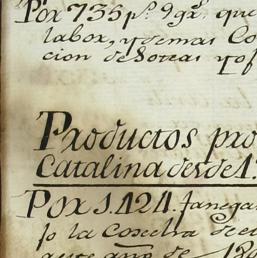 Por 735 p.s 9 gr.s que
labor, y demas Co
cion de Soteas y of
Productos pro
Catalina desde 1
Por 1.424. fanega
jo la Cosecha de e
año de